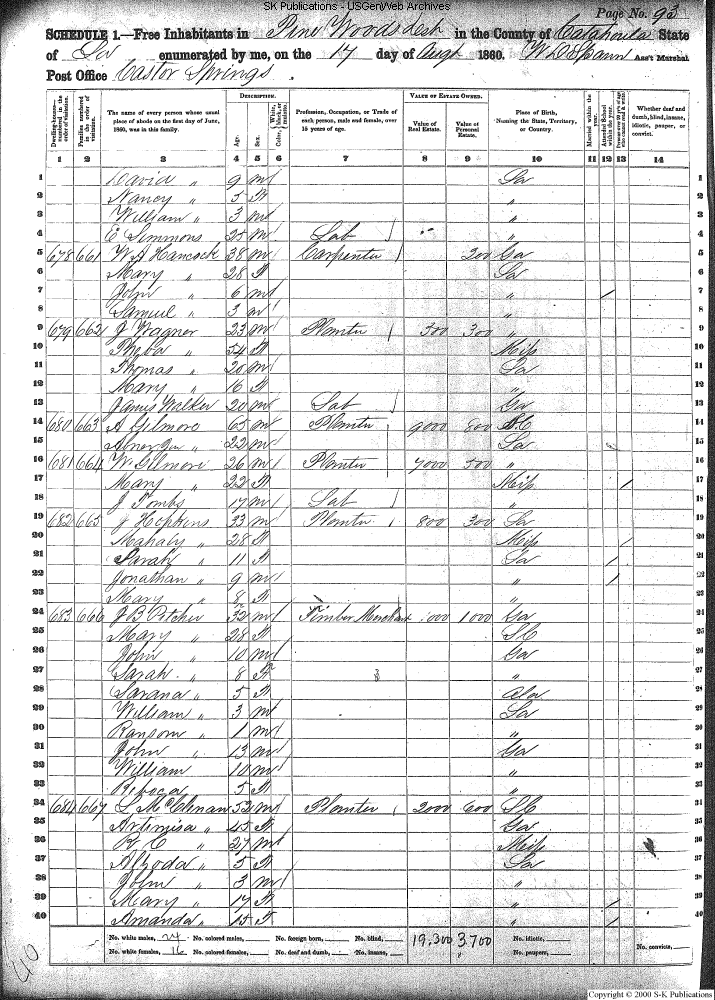 SK Publications - USGenWeb Archives
Page No. 93
SCHEDULE 1.—Free Inhabitants in Pine Woods Desh in the County of Catahoula State
of La enumerated by me, on the 17 day of Augt 1860. Ass't Marshal
Post Office Castor Springs.
DESCRIPTION. VALUE OF ESTATE OWNED.
Dwelling-houses—numbered in the order of visitation. Families numbered in the order of visitation. The name of every person whose usual place of abode on the first day of June, 1860, was in this family. Age. Sex. Color, White, black, or mulatto. Profession, Occupation, or Trade of each person, male and female, over 15 years of age. Value of Real Estate. Value of Personal Estate. Place of Birth, Naming the State, Territory, or Country. Married within the year. Attended School within the year. Whether deaf and dumb, blind, insane, idiotic, pauper, or convict.
1 2 3 4 5 6 7 8 9 10 11 12 13 14
1 David " 9 m La 1
2 Nancy " 5 f " 2
3 William " 3 m " 3
4 E Simmons 25 m Lab " 4
5 678 661 W A Hancock 38 m Carpenter 200 Ga 5
6 Mary " 28 f La 6
7 John " 6 m " / 7
8 Samuel " 3 m " 8
9 679 662 J Wagner 23 m Planter 500 300 " 9
10 Pheba " 54 f Miss 10
11 Thomas " 20 m La 11
12 Mary " 16 f " 12
13 James Walker 20 m Lab Ga 13
14 680 663 A Gilmore 65 m Planter 9000 800 SC 14
15 Abner " 22 m La 15
16 681 664 W Gilmore 26 m Planter 7000 500 " 16
17 Mary " 22 f Miss / 17
18 J Tombs 17 m Lab 18
19 682 665 J Hopkins 33 m Planter 800 300 La 19
20 Mahaly " 28 f Miss / 20
21 Sarah " 11 f La / 21
22 Jonathan " 9 m " / 22
23 Mary " 8 f " 23
24 683 666 J B Pitcher 32 m Timber Merchant 1000 Ga 24
25 Mary " 28 f SC 25
26 John " 10 m Ga 26
27 Sarah " 8 f " 27
28 Savana " 5 f Ala 28
29 William " 3 m La 29
30 Ransom " 1 m " 30
31 John " 13 m Ga 31
32 William 10 m " 32
33 Rebeca 5 f " 33
34 684 667 L McClenan 52 m Planter 2000 600 SC 34
35 Artimisa " 45 f Ga 35
36 R C " 27 m Miss 36
37 Alzoda " 5 f La 37
38 John " 3 m " 38
39 Mary " 17 f " / 39
40 Amanda " 15 f " / 40
No. white males, 24 No. colored males, No. foreign born, No. blind, 19,300 3700 No. idiotic,
No. white females, 16 No. colored females, No. deaf and dumb, No. insane, No. paupers, No. convicts,
40
Copyright © 2000 S-K Publications